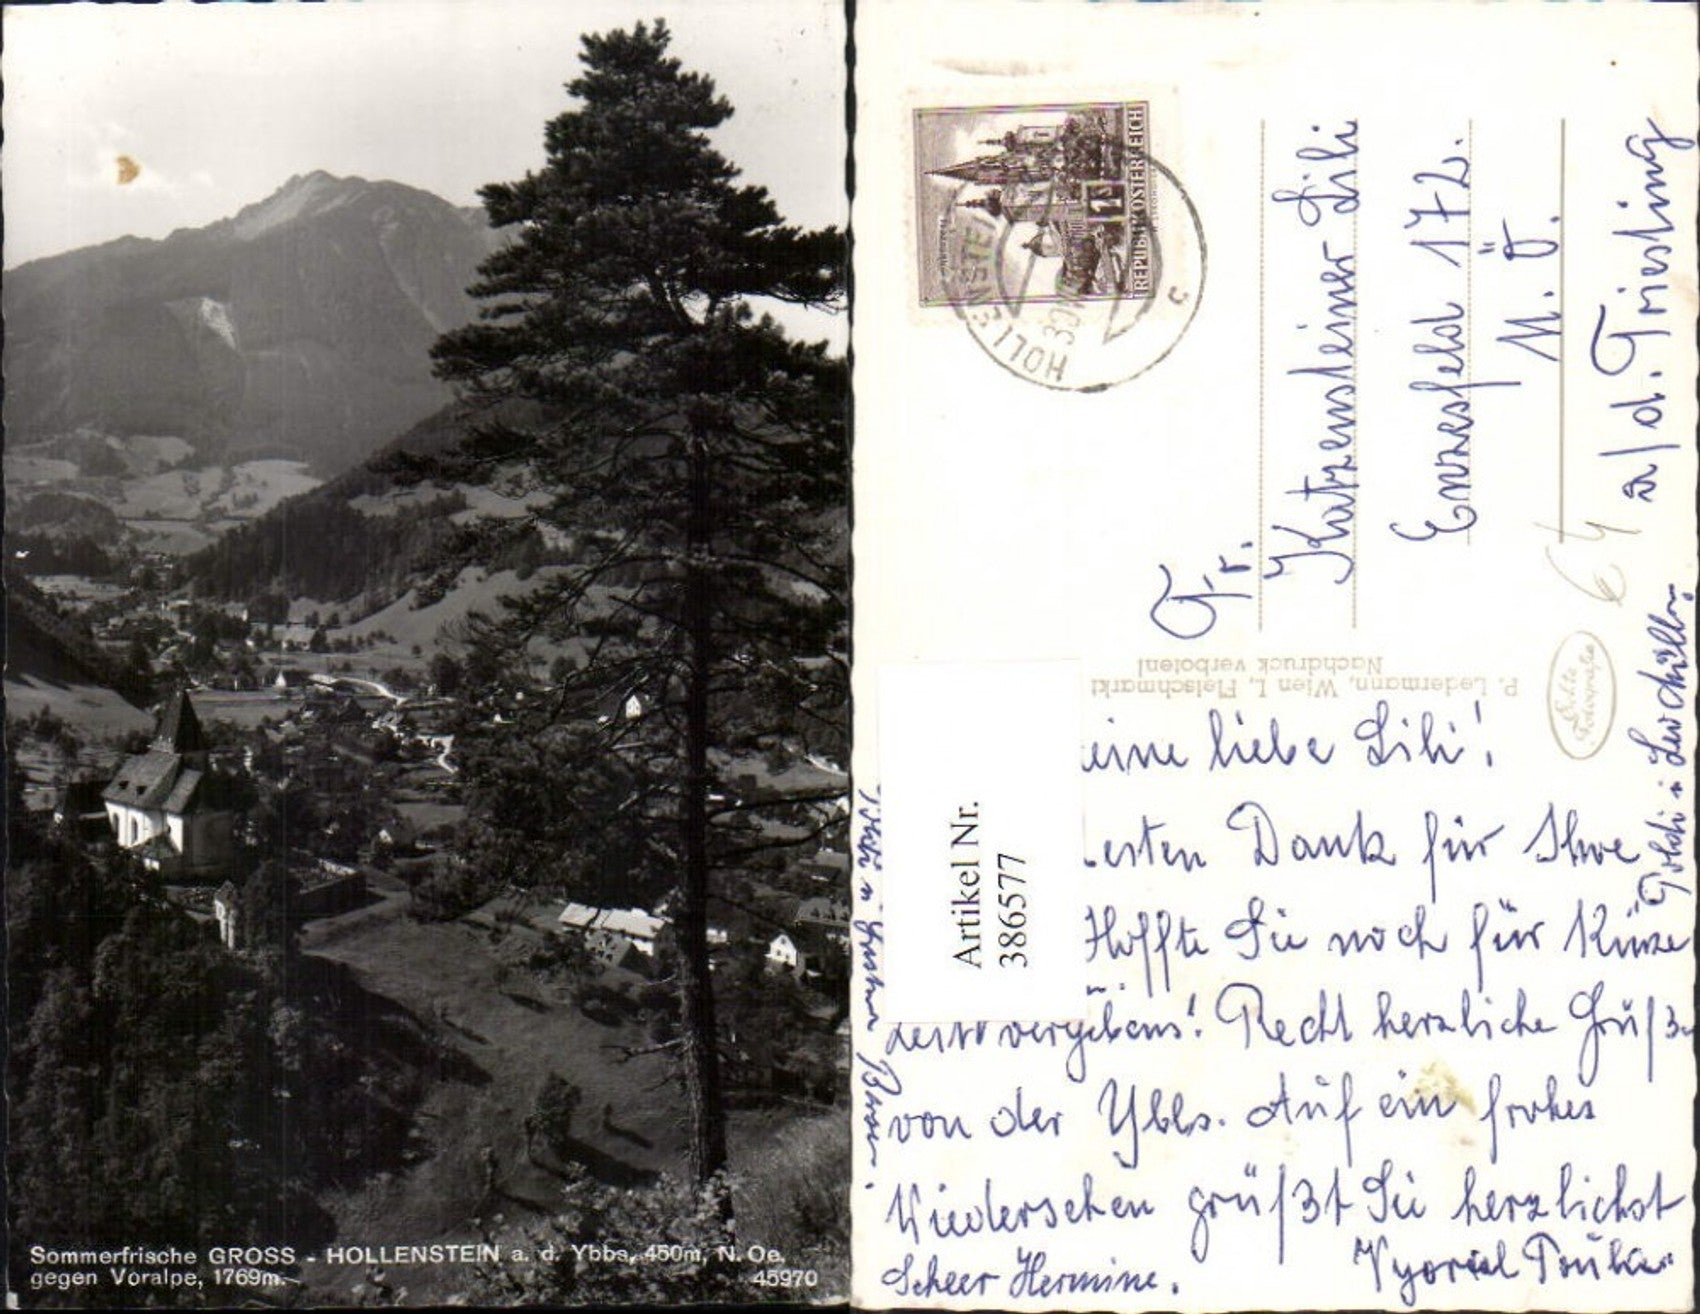 Sommerfrische GROSS - HOLLENSTEIN a. d. Ybbs, 450m, N. Oe.
gegen Voralpe, 1769m.
45970
REPUBLIK ÖSTERREICH
HOLLENSTEI
C
Fr.
Katzensteiner Lili
Enzesfeld 172.
N. Ö.
a/d. Triesting
€ 4
P. Ledermann, Wien I, Fleischmarkt
Nachdruck verboten!
Echte
Artikel Nr.
386577
eine liebe Lili!
esten Dank für Ihre
Hoffte Sie noch für Kurze
vergebens! Recht herzliche Grüße
von der Ybbs. Auf ein frohes
Wiedersehen grüßt Sie herzlichst
Scheer Hermine.